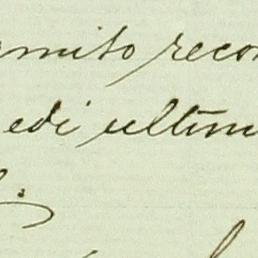 rmito recon
edi ultim